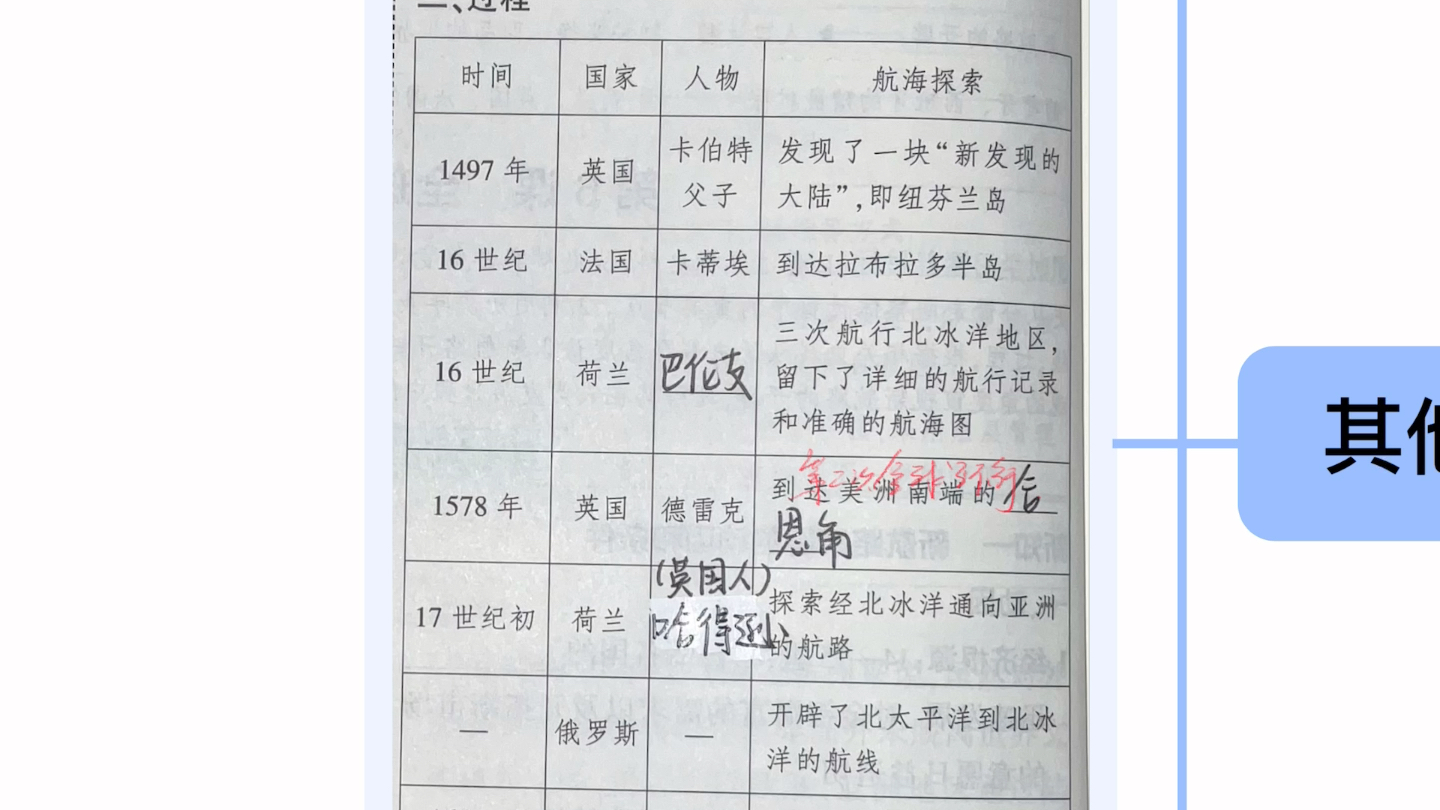 二、过程
时间 国家 人物 航海探索
1497 年 英国 卡伯特
父子 发现了一块“新发现的
大陆”,即纽芬兰岛
16 世纪 法国 卡蒂埃 到达拉布拉多半岛
16 世纪 荷兰 巴伦支 三次航行北冰洋地区,
留下了详细的航行记录
和准确的航海图
第二次全球环行
1578 年 英国 德雷克 到达美洲南端的合
恩角
17 世纪初 荷兰 (英国人)
哈得逊 探索经北冰洋通向亚洲
的航路
— 俄罗斯 — 开辟了北太平洋到北冰
洋的航线
其他